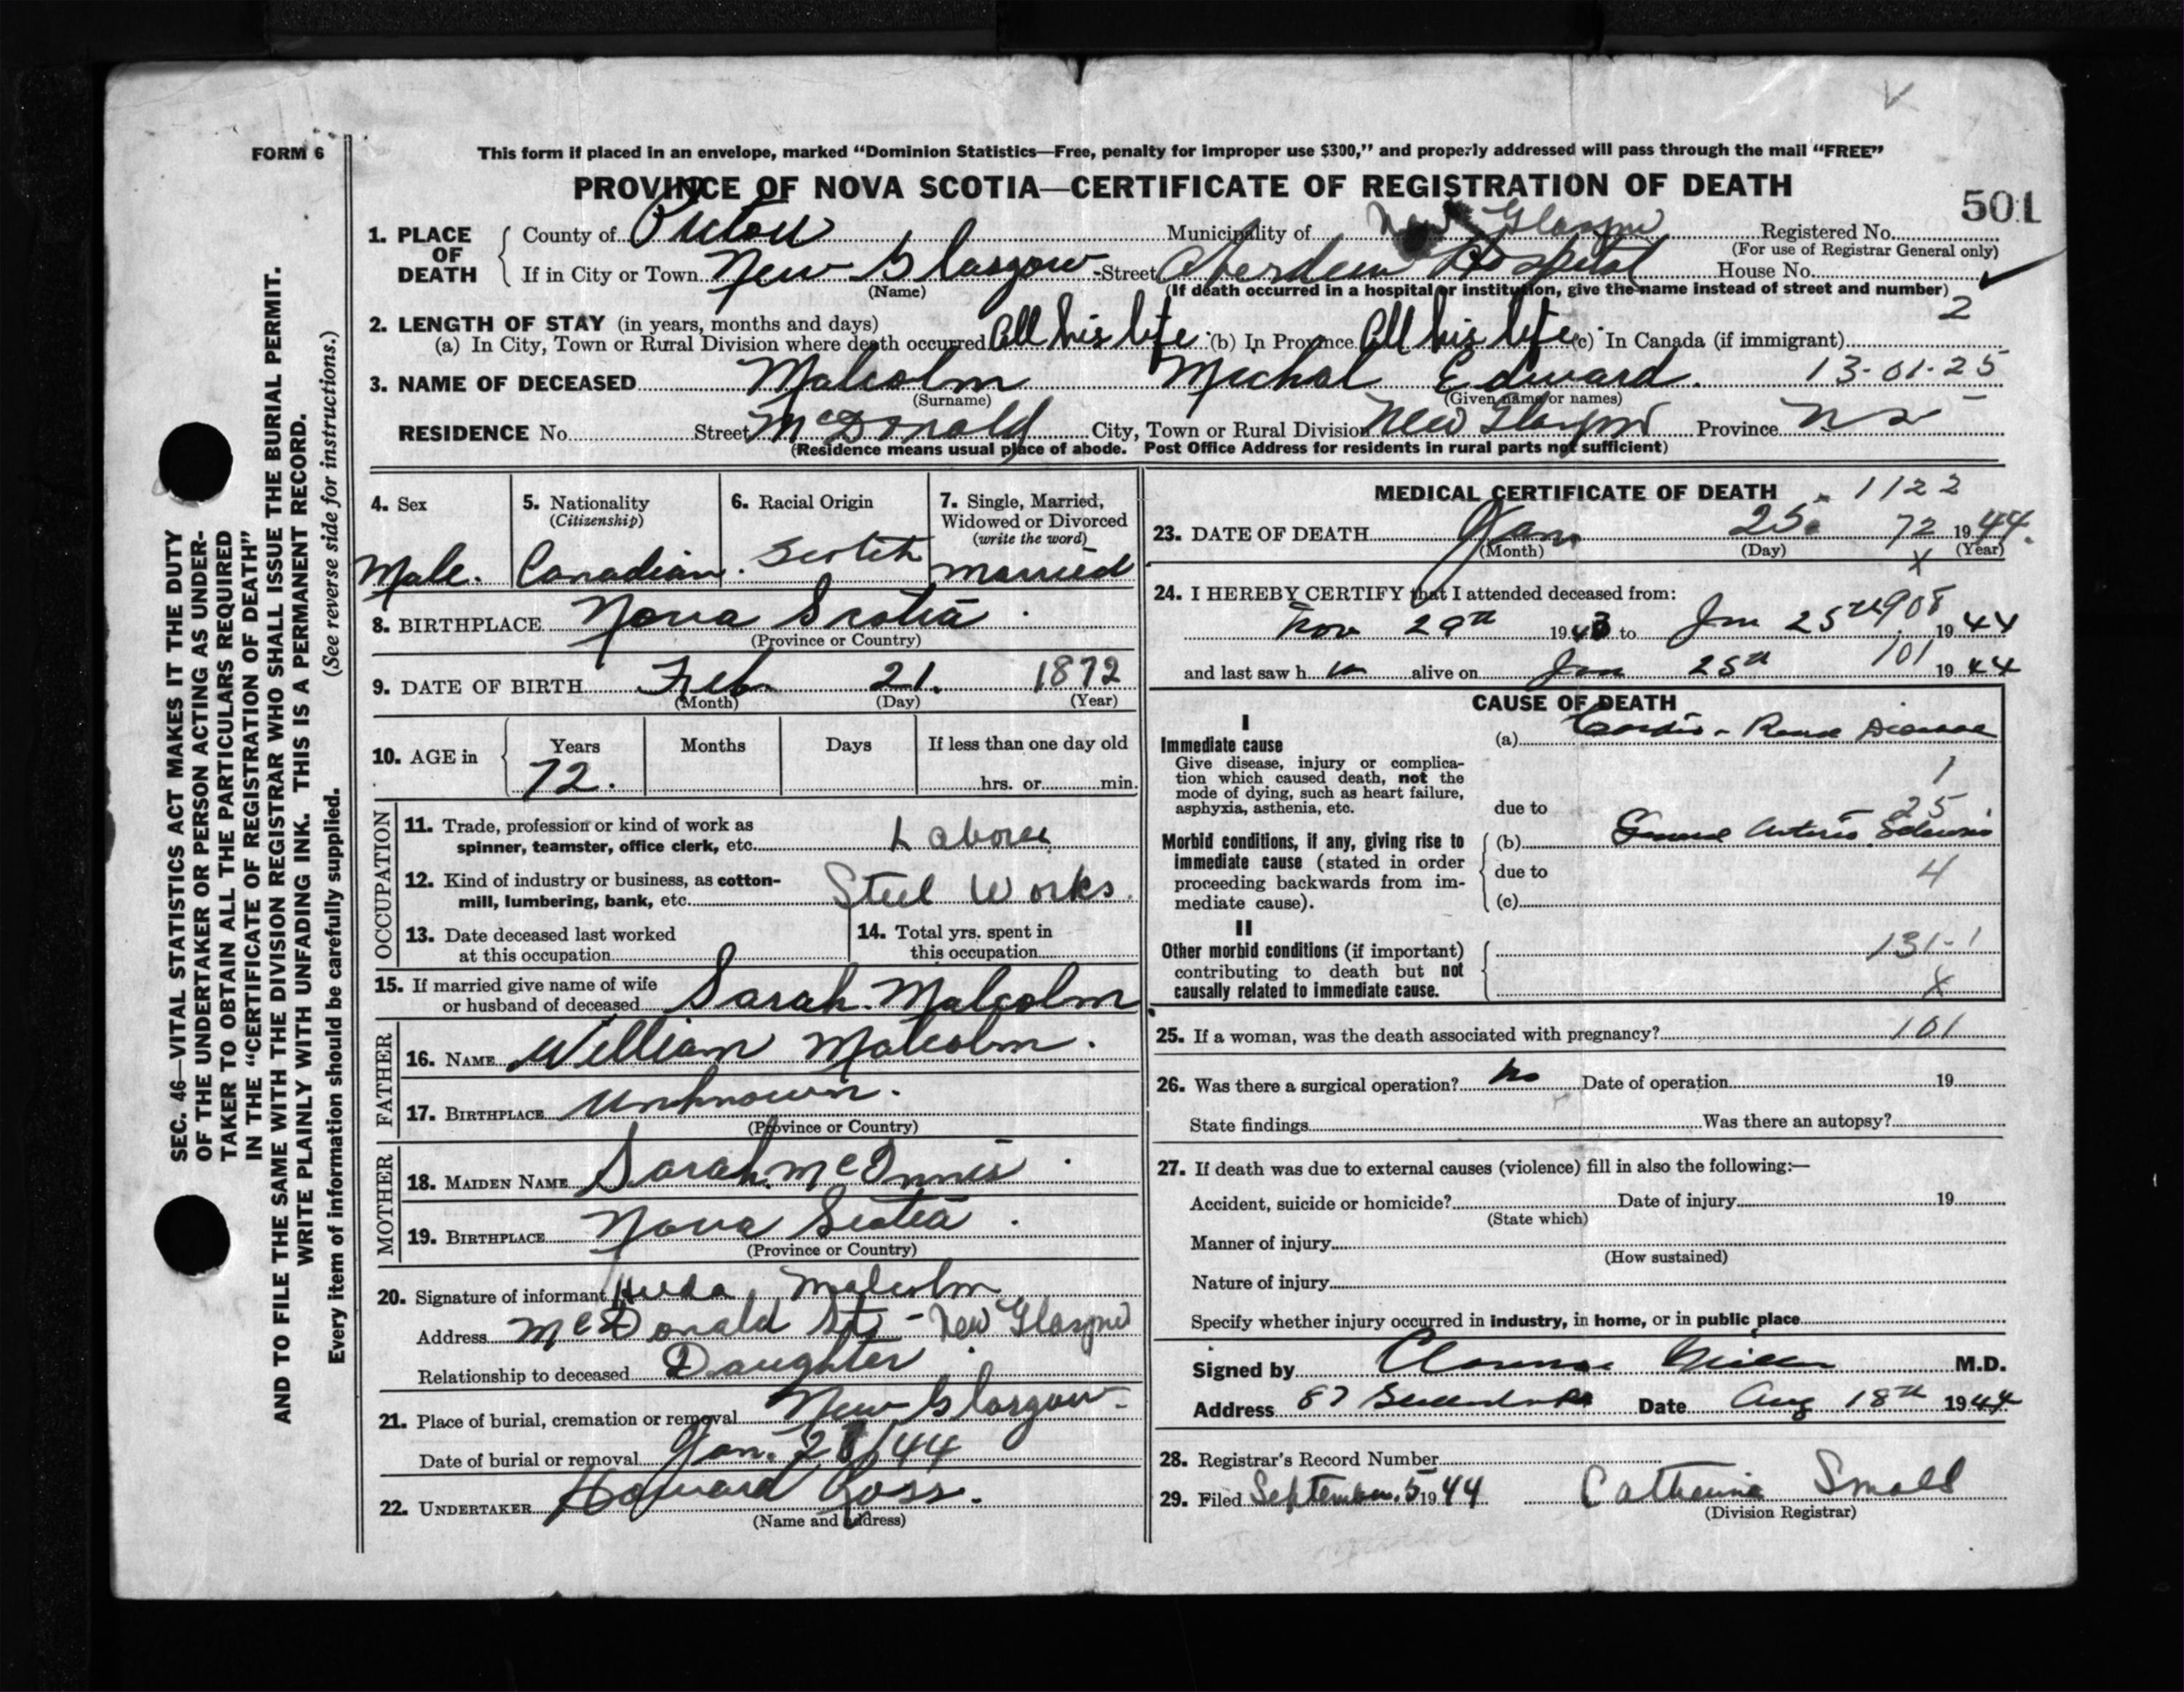 FORM 6
This form if placed in an envelope, marked “Dominion Statistics—Free, penalty for improper use $300,” and properly addressed will pass through the mail “FREE”
PROVINCE OF NOVA SCOTIA—CERTIFICATE OF REGISTRATION OF DEATH
501
1. PLACE OF DEATH County of Pictou Municipality of New Glasgow Registered No.
(For use of Registrar General only)
If in City or Town New Glasgow - Street Aberdeen Hospital House No.
(Name) (If death occurred in a hospital or institution, give the name instead of street and number)
2
2. LENGTH OF STAY (in years, months and days)
(a) In City, Town or Rural Division where death occurred All his life (b) In Province All his life (c) In Canada (if immigrant)
3. NAME OF DECEASED Malcolm Michal Edward. 13-01-25
(Surname) (Given name or names)
RESIDENCE No. Street McDonald City, Town or Rural Division New Glasgow Province N S
(Residence means usual place of abode. Post Office Address for residents in rural parts not sufficient)
4. Sex
Male.
5. Nationality
(Citizenship)
Canadian.
6. Racial Origin
Scotch
7. Single, Married, Widowed or Divorced
(write the word)
Married
8. BIRTHPLACE Nova Scotia
(Province or Country)
9. DATE OF BIRTH Feb 21. 1872
(Month) (Day) (Year)
10. AGE in Years Months Days If less than one day old
72. hrs. or min.
OCCUPATION
11. Trade, profession or kind of work as
spinner, teamster, office clerk, etc. Laborer
12. Kind of industry or business, as cotton-
mill, lumbering, bank, etc. Steel Works.
13. Date deceased last worked
at this occupation
14. Total yrs. spent in
this occupation
15. If married give name of wife
or husband of deceased Sarah Malcolm
FATHER
16. NAME William Malcolm.
17. BIRTHPLACE Unknown.
(Province or Country)
MOTHER
18. MAIDEN NAME Sarah McInnis
19. BIRTHPLACE Nova Scotia
(Province or Country)
20. Signature of informant Malcolm
Address McDonald St - New Glasgow
Relationship to deceased Daughter
21. Place of burial, cremation or removal New Glasgow
Date of burial or removal Jan. 28/44
22. UNDERTAKER Howard Ross.
(Name and address)
MEDICAL CERTIFICATE OF DEATH - 1122
23. DATE OF DEATH Jan 25. 72 1944.
(Month) (Day) (Year)
X
24. I HEREBY CERTIFY that I attended deceased from:
Nov 29th 1943 to Jan 25th 908 1944
and last saw h alive on Jan 25th 101 1944
CAUSE OF DEATH
I
Immediate cause
Give disease, injury or complica-
tion which caused death, not the
mode of dying, such as heart failure,
asphyxia, asthenia, etc.
(a) Cardio - Renal Disease
1
due to
25
Morbid conditions, if any, giving rise to
immediate cause (stated in order
proceeding backwards from im-
mediate cause).
(b) General Arterio Sclerosis
due to 4
(c)
II
Other morbid conditions (if important)
contributing to death but not
causally related to immediate cause.
131-1
X
25. If a woman, was the death associated with pregnancy? 101
26. Was there a surgical operation? No Date of operation 19
State findings Was there an autopsy?
27. If death was due to external causes (violence) fill in also the following:—
Accident, suicide or homicide? Date of injury 19
(State which)
Manner of injury
(How sustained)
Nature of injury
Specify whether injury occurred in industry, in home, or in public place
Signed by Clarence Miller M.D.
Address 87 Date Aug 18th 1944
28. Registrar's Record Number
29. Filed September 5 1944 Catherine Small
(Division Registrar)
SEC. 46—VITAL STATISTICS ACT MAKES IT THE DUTY
OF THE UNDERTAKER OR PERSON ACTING AS UNDER-
TAKER TO OBTAIN ALL THE PARTICULARS REQUIRED
IN THE “CERTIFICATE OF REGISTRATION OF DEATH”
AND TO FILE THE SAME WITH THE DIVISION REGISTRAR WHO SHALL ISSUE THE BURIAL PERMIT.
WRITE PLAINLY WITH UNFADING INK. THIS IS A PERMANENT RECORD.
Every item of information should be carefully supplied. (See reverse side for instructions.)